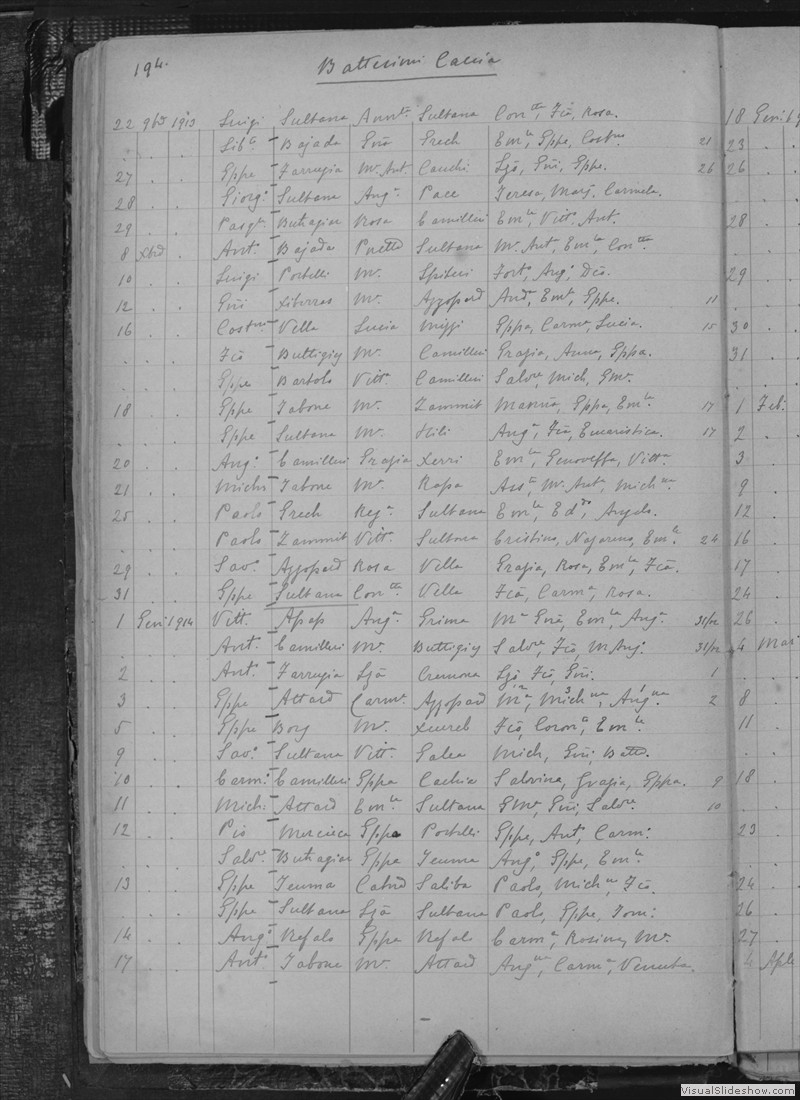 194.
Battesimi Caccia
22 9bre 1913 Luigi Sultana Annta Sultana Contta, Fcā, Rosa. 18 Gen: 19
. . Libo Bajada Giña Grech Emla, Gppe, Costna 21 23
27 . . Gppe Farrugia Ma. Ant Cauchi Lzā, Giñi, Gppe. 26 26
28 . . Giorgo Sultana Anga Pace Teresa, Marj. Carmela.
29 . . Pasqle Buhagiar Rosa Camilleri Emla, Vitta Ant. 28
8 Xbre . Anto Bajada Sultana Ma. Ant, Emla, Contta
10 . . Luigi Portelli Ma. Spiteri Forta, Anga, Dca. 29
12 . . Giñi Xiberras Ma. Azzopard Anda, Emla, Gppe. 11
16 . . Costno Vella Lucia Mizzi Gppa, Carma, Lucia. 15 30
. . . Fcō Buttigieg Ma. Camilleri Grazia, Anna, Gppa. 31
. . . Gppe Bartolo Vitta Camilleri Salvre, Mich, Gma.
18 . . Gppe Tabone Ma. Zammit Gppa, Emla. 17 1 Feb:
. . . Gppe Sultana Ma. Hili Anga, Fcā, Eucaristica. 17 2
20 . . Ango Camilleri Grazia Xerri Emla, Genoveffa, Vitta 3
21 . . Michi Tabone Ma. Rapa Asta, Ma. Anta, Michna 9
25 . . Paolo Grech Rega Sultana Emla, Eddo, Angelo. 12
. . . Paolo Zammit Vitta Sultana Cristina, Nazarena, Emla. 24 16
29 . . Savo Azzopard Rosa Vella Grazia, Rosa, Emla, Fcā. 17
31 . . Gppe Sultana Contta Vella Fcā, Carma, Rosa. 24
1 Gen: 1914 Vitto Apap Anga Grima Ma Giñā, Emla, Anga 31/12 26
. . . Anto Camilleri Ma. Buttigieg Salvre, Fcō, M Ang. 31/12 4 Mar
2 . . Anto Farrugia Lzā Cremona Lzō, Fcō, Giñi. 1
3 . . Gppe Attard Carma Azzopard Ma, Michna, Angna 2 8
5 . . Gppe Borg Ma. Xuereb Fcō, Corona, Emla. 11
9 . . Savo Sultana Vitta Galea Mich, Giñi, Batta.
10 . . Carmo Camilleri Gppa Cachia Salvina, Grazia, Gppa. 9 18
11 . . Mich: Attard Emla Sultana Gma, Giñi, Salvre 10
12 . . Pio Mercieca Gppa Portelli Gppe, Ant, Carm: 23
. . . Salvre Buhagiar Gppa Teuma Ango, Gppe, Emla
13 . . Gppe Teuma Saliba Paolo, Micha, Fcō. 24
. . . Gppe Sultana Lzā Sultana Paolo, Gppe, Tom: 26
14 . . Ango Refalo Gppa Refalo Carma, Rosina, Ma. 27
17 . . Anto Tabone Ma. Attard Angna, Carma, Venerta. 4 Aple
VisualSlideshow.com